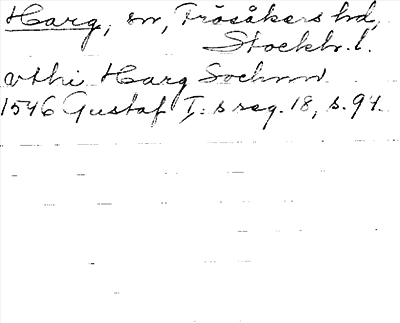 Harg, sn, Frösåkers hd,
Stockh. l.
vthi Harg Sochnn
1546 Gustaf I:s reg. 18, s. 94.